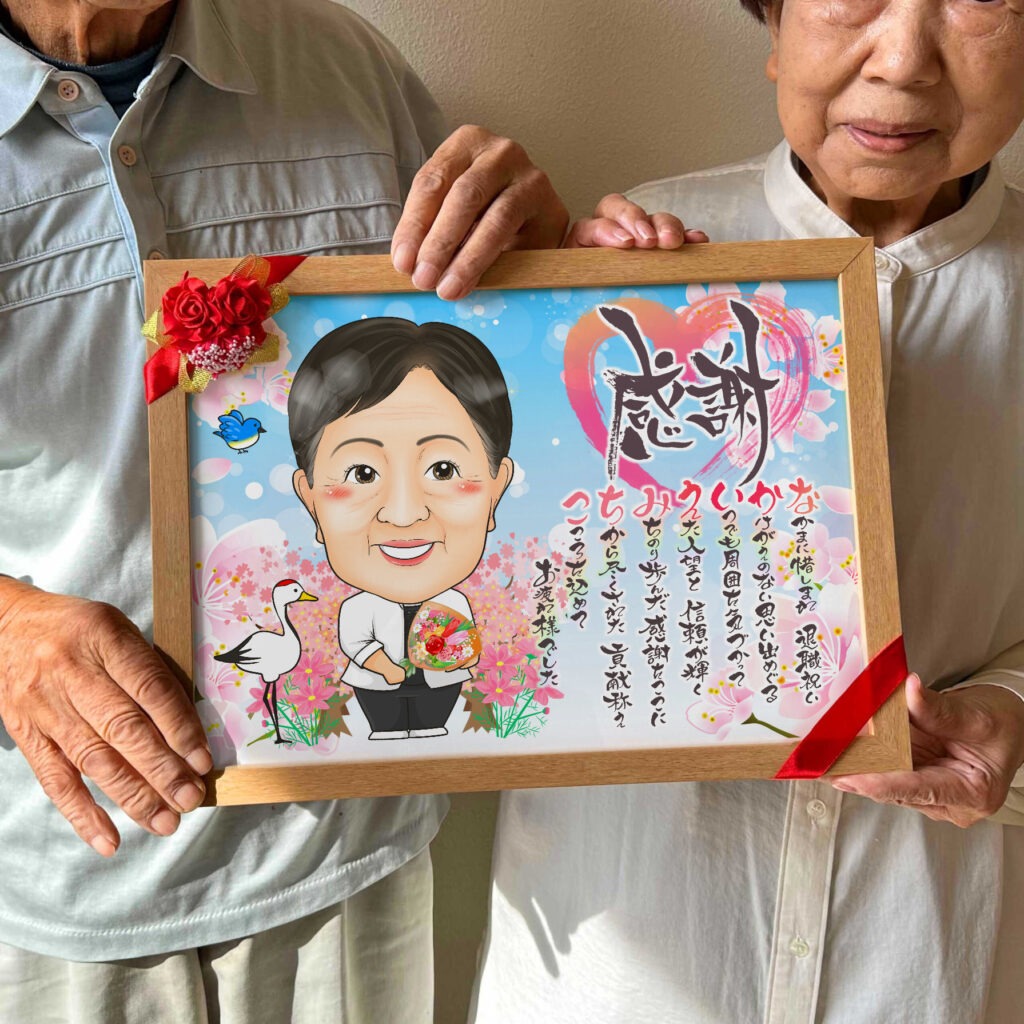 感謝
なかまに惜しまれ 退職祝い
かけがえのない思い出めぐる
いつでも周囲を気づかって
えた人望と 信頼が輝く
みちのり歩んだ感謝をここに
ちから尽くされた 貢献称え
こころを込めて
お疲れ様でした